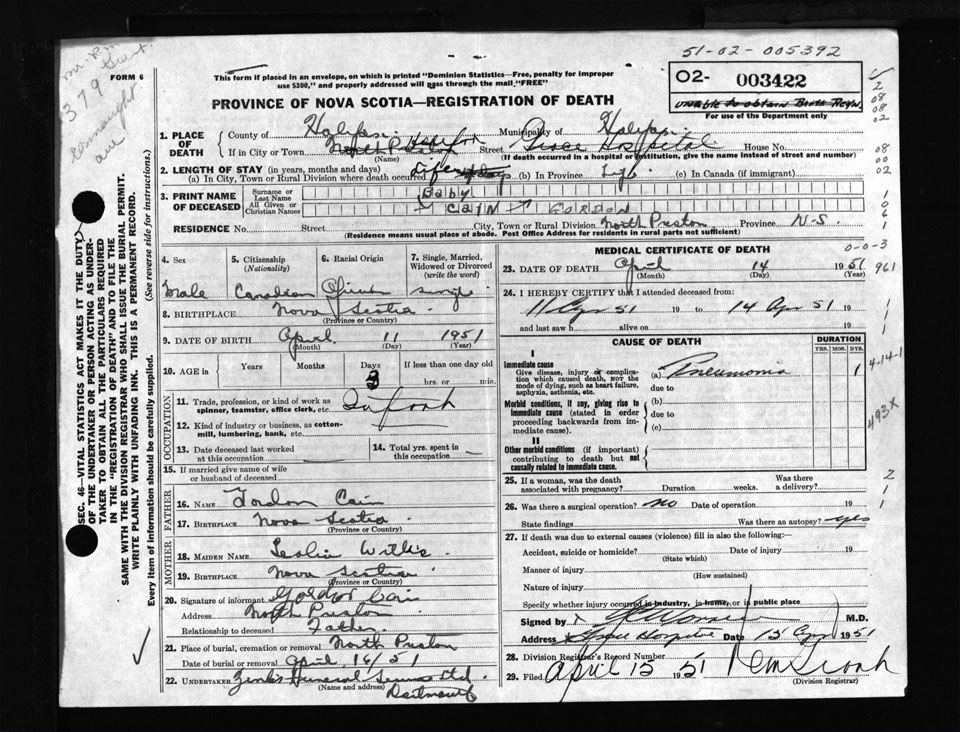 51-02-005392
379
FORM 6
This form if placed in an envelope, on which is printed "Dominion Statistics—Free, penalty for improper
use $300," and properly addressed will pass through the mail, "FREE"
PROVINCE OF NOVA SCOTIA—REGISTRATION OF DEATH
02- 003422
For use of the Department only
1. PLACE OF DEATH
County of Halifax Municipality of Halifax
If in City or Town Halifax Street Grace Hospital House No.
(Name) (If death occurred in a hospital or institution, give the name instead of street and number)
2. LENGTH OF STAY (in years, months and days)
(a) In City, Town or Rural Division where death occurred Life (b) In Province Life (c) In Canada (if immigrant)
3. PRINT NAME OF DECEASED
Surname or Last Name Baby
All Given or Christian Names CAIN GORDON
RESIDENCE No. Street City, Town or Rural Division North Preston Province N-S.
(Residence means usual place of abode. Post Office Address for residents in rural parts not sufficient)
4. Sex
Male
5. Citizenship (Nationality)
Canadian
6. Racial Origin
7. Single, Married, Widowed or Divorced (write the word)
single
8. BIRTHPLACE Nova Scotia
(Province or Country)
9. DATE OF BIRTH April 11 1951
(Month) (Day) (Year)
10. AGE in Years Months Days 3 If less than one day old
hrs. or min.
OCCUPATION
11. Trade, profession, or kind of work as
spinner, teamster, office clerk, etc.
12. Kind of industry or business, as cotton-
mill, lumbering, bank, etc.
13. Date deceased last worked
at this occupation
14. Total yrs. spent in
this occupation
15. If married give name of wife
or husband of deceased
FATHER
16. NAME Gordon Cain
17. BIRTHPLACE Nova Scotia
(Province or Country)
MOTHER
18. MAIDEN NAME Leslie Willis
19. BIRTHPLACE Nova Scotia
(Province or Country)
20. Signature of informant Gordon Cain
Address North Preston
Relationship to deceased Father
21. Place of burial, cremation or removal North Preston
Date of burial or removal April 16/51
22. UNDERTAKER Zink's Funeral Service Ltd.
(Name and address) Dartmouth
MEDICAL CERTIFICATE OF DEATH
0-0-3
23. DATE OF DEATH April 14 1951
(Month) (Day) (Year)
961
24. I HEREBY CERTIFY that I attended deceased from:
11 Apr 51 19 to 14 Apr 51 19
and last saw h alive on 19
CAUSE OF DEATH
DURATION
YRS. MOS. DYS.
I
Immediate cause
Give disease, injury or complication which caused death, NOT the mode of dying, such as heart failure, asphyxia, asthenia, etc.
(a) Pneumonia 1
due to
Morbid conditions, if any, giving rise to immediate cause (stated in order proceeding backwards from immediate cause).
(b)
due to
(c)
II
Other morbid conditions (if important) contributing to death but not causally related to immediate cause.
4-14-1
493X
25. If a woman, was the death
associated with pregnancy? Duration weeks. Was there a delivery?
26. Was there a surgical operation? no Date of operation 19
State findings Was there an autopsy? yes
27. If death was due to external causes (violence) fill in also the following:
Accident, suicide or homicide? Date of injury 19
(State which)
Manner of injury
(How sustained)
Nature of injury
Specify whether injury occurred in industry, in home, or in public place
Signed by M.D.
Address Grace Hospital Date 15 Apr 1951
28. Division Registrar's Record Number
29. Filed April 15 1951
(Division Registrar)
SEC. 46—VITAL STATISTICS ACT MAKES IT THE DUTY
OF THE UNDERTAKER OR PERSON ACTING AS UNDER-
TAKER TO OBTAIN ALL THE PARTICULARS REQUIRED
IN THE "REGISTRATION OF DEATH" AND TO FILE THE
SAME WITH THE DIVISION REGISTRAR WHO SHALL ISSUE THE BURIAL PERMIT.
WRITE PLAINLY WITH UNFADING INK. THIS IS A PERMANENT RECORD.
Every item of information should be carefully supplied. (See reverse side for instructions.)